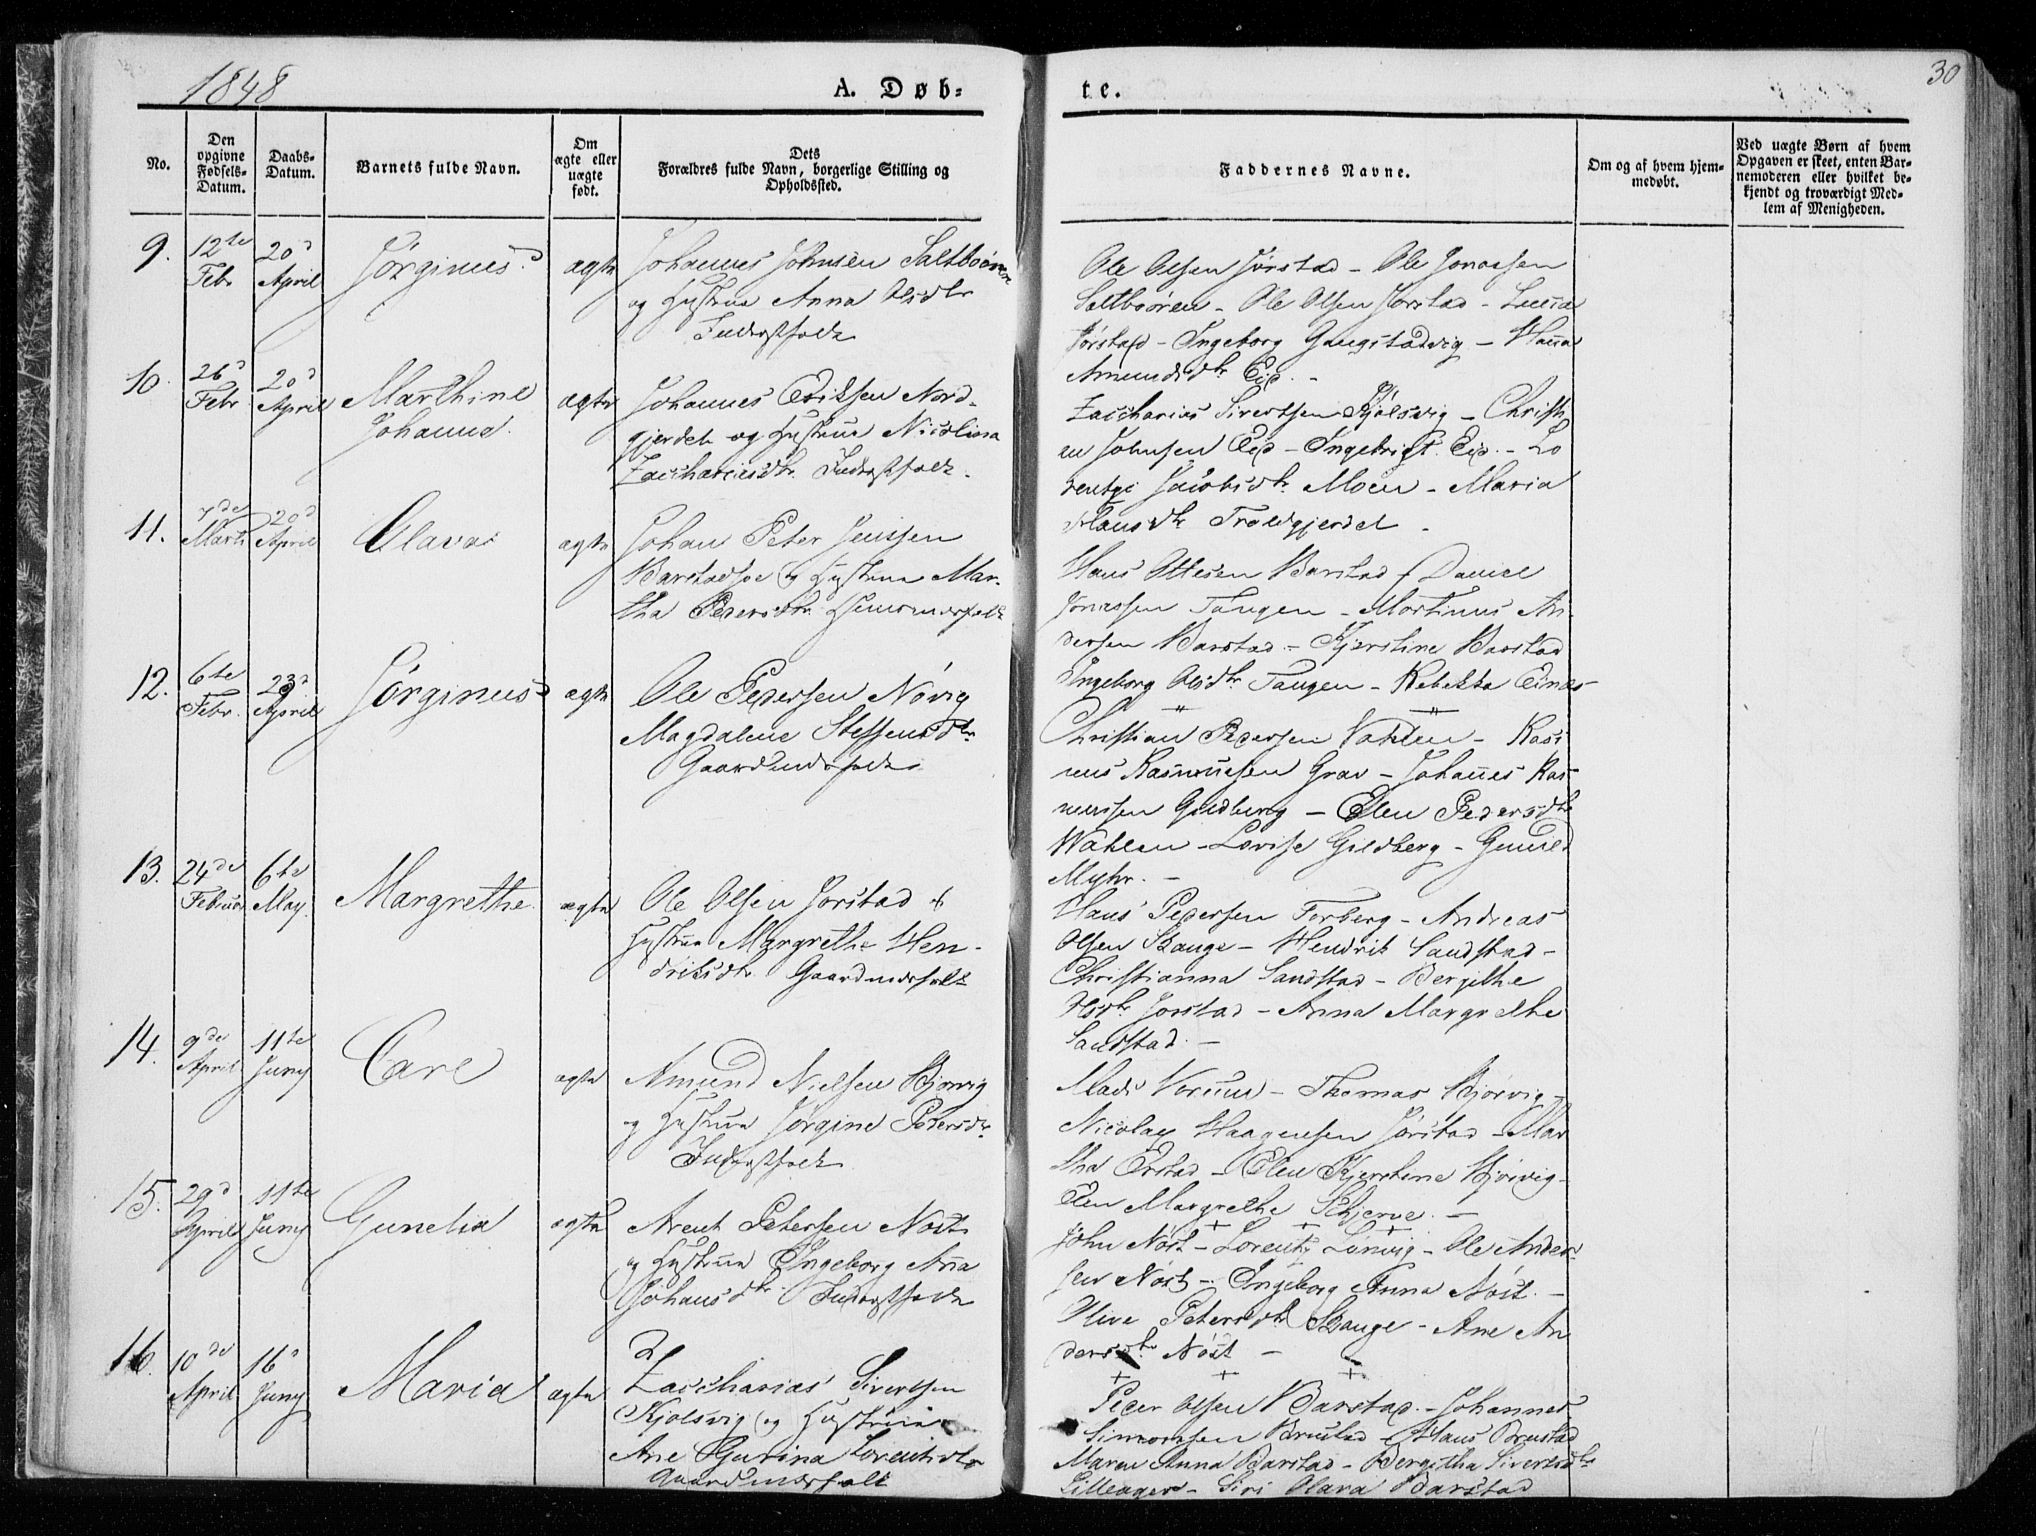 1848
A. Døb-
te.
30
No.
Den
opgivne
Fødsels-
Datum.
Daabs-
Datum.
Barnets fulde Navn.
Om
ægte eller
uægte
født.
Dets
Forældres fulde Navn, borgerlige Stilling og
Opholdssted.
Faddernes Navne.
Om og af hvem hjem-
medøbt.
Ved uægte Børn af hvem
Opgaven er skeet, enten Bar-
nemoderen eller hvilket be-
kjendt og troværdigt Med-
lem af Menigheden.
9. 12te Febr 20d April Jørginus ægte
Johannes Johnsen Saltbøren
og Hustrue Anna Olsdtr
Inderstfolk
Ole Olsen Jørstad - Ole Jonassen
Saltbøren - Ole Olsen Jørstad - Lucia
Jørstad - Ingeborg Gangstadvig - Hanna
Amundsdtr Eid. -
10. 26d Febr 20d April Marthine Johanna ægte
Johannes Eriksen Nord-
gjerdet og Hustrue Nicolina
Zacchariasdtr. Inderstfolk.
Zaccharias Sivertsen Kjølsvig - Christi-
an Johnsen Eid - Ingebrigt Eid - Lo
rentze Jacobsdtr Moen - Maria
Hansdtr Troldgjerdet -
11. 7de Marti 20d April Olava ægte
Johan Peter Jenssen
Barstad og Hustrue Mar-
tha Pedersdtr. Huusmandsfolk
Hans Ottesen Barstad - Daniel
Jonassen Tangen - Martinus An-
dersen Barstad - Kjerstine Barstad
Ingeborg Olsdtr Tangen - Rebekka
12. 6te Febr. 23d April Jørginus ægte
Ole Pedersen Nøvig
Magdalene Steffensdtr
Gaardmandsfolk
Christian Pedersen Vahlen - Rasi
nus Rasmussen Grav - Johannes Ras-
mussen Gildberg - Elen Pedersdtr
Wahlen - Lovise Gildberg - Gunild
Myhr. -
13. 24de Februar 6te May. Margrethe ægte
Ole Olsen Jørstad &
Hustrue Margrethe Hen-
driksdtr. Gaardmandsfolk
Hans Pedersen Forberg - Andreas
Olsen Stange - Hendrik Sandstad -
Christianna Sandstad - Bergithe
Olsdtr Jørstad - Anna Margrethe
Sandstad. -
14. 9de April 11te Juny Carl ægte
Amund Nielsen Bjørvig
og Hustrue Jørgine Petersdtr.
Inderstfolk
Mads Verum - Thomas Bjørvig -
Nicolay Haagensen Jørstad - Mar
tha - Elen Kjerstine Bjørvig -
Elen Margrethe Skjerve. -
15. 29d April 11te Juny Gunelia ægte
Arent Petersen Nøst
og Hustrue Ingeborg Anna
Johansdtr. Inderstfolk
John Nøst - Lorentz Lønvig - Ole Ander-
sen Nøst - Ingeborg Anna Nøst. -
Olive Petersdtr Stange - Ane An
dersdtr Nøst -
16. 10de April 16d Juny Maria ægte
Zaccharias Sivertsen
Kjølsvig og Hustrue
Ane Gurina Lorentsdtr
Gaardmandsfolk
Peder Olsen Barstad - Johannes
Simonsen Brustad - Hans Brustad
Maren Anna Barstad - Bergitha Sivertsdtr
Lilleager - Siri Olava Barstad